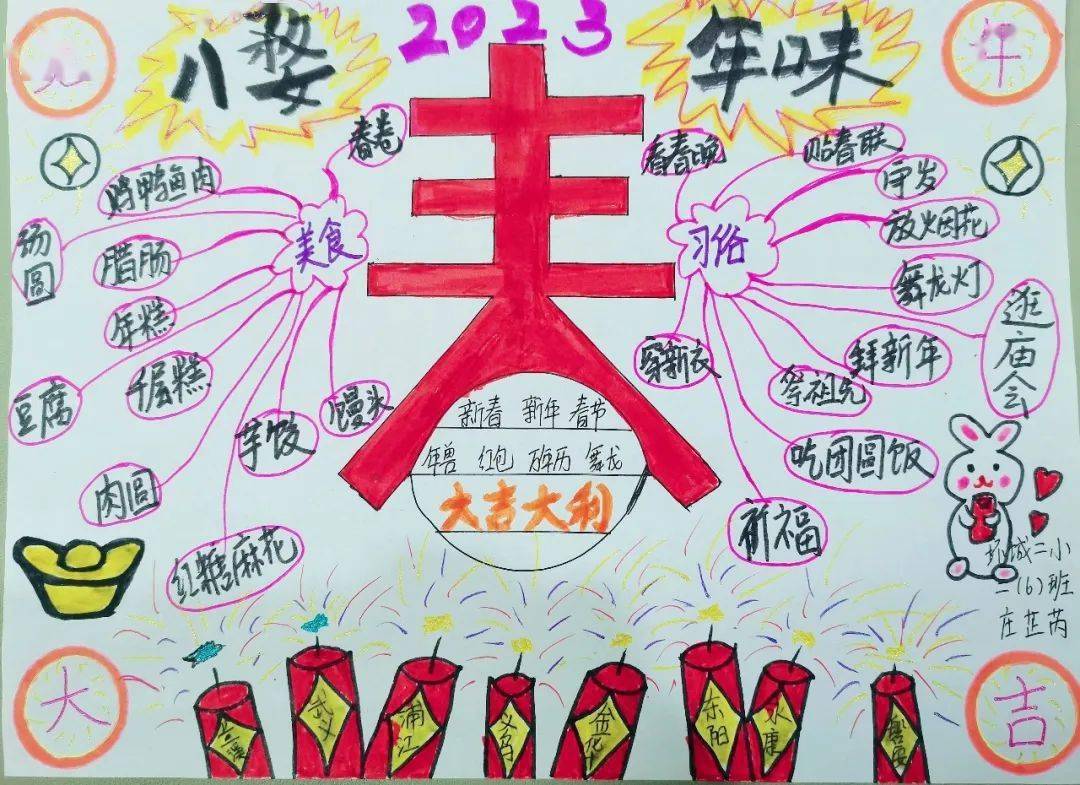 八婺
2023
年味
年
春
春卷
鸡鸭鱼肉
汤圆
腊肠
年糕
千层糕
豆腐
肉圆
芋饺
馒头
红糖麻花
美食
看春晚
贴春联
守岁
放烟花
舞龙灯
逛庙会
拜新年
祭祖先
吃团圆饭
穿新衣
祈福
习俗
新春 新年 春节
年兽 红包 万年历 舞龙
大吉大利
环城二小
二(6)班
庄芷芮
大
武义
浦江
义乌
金华
东阳
永康
磐安
吉